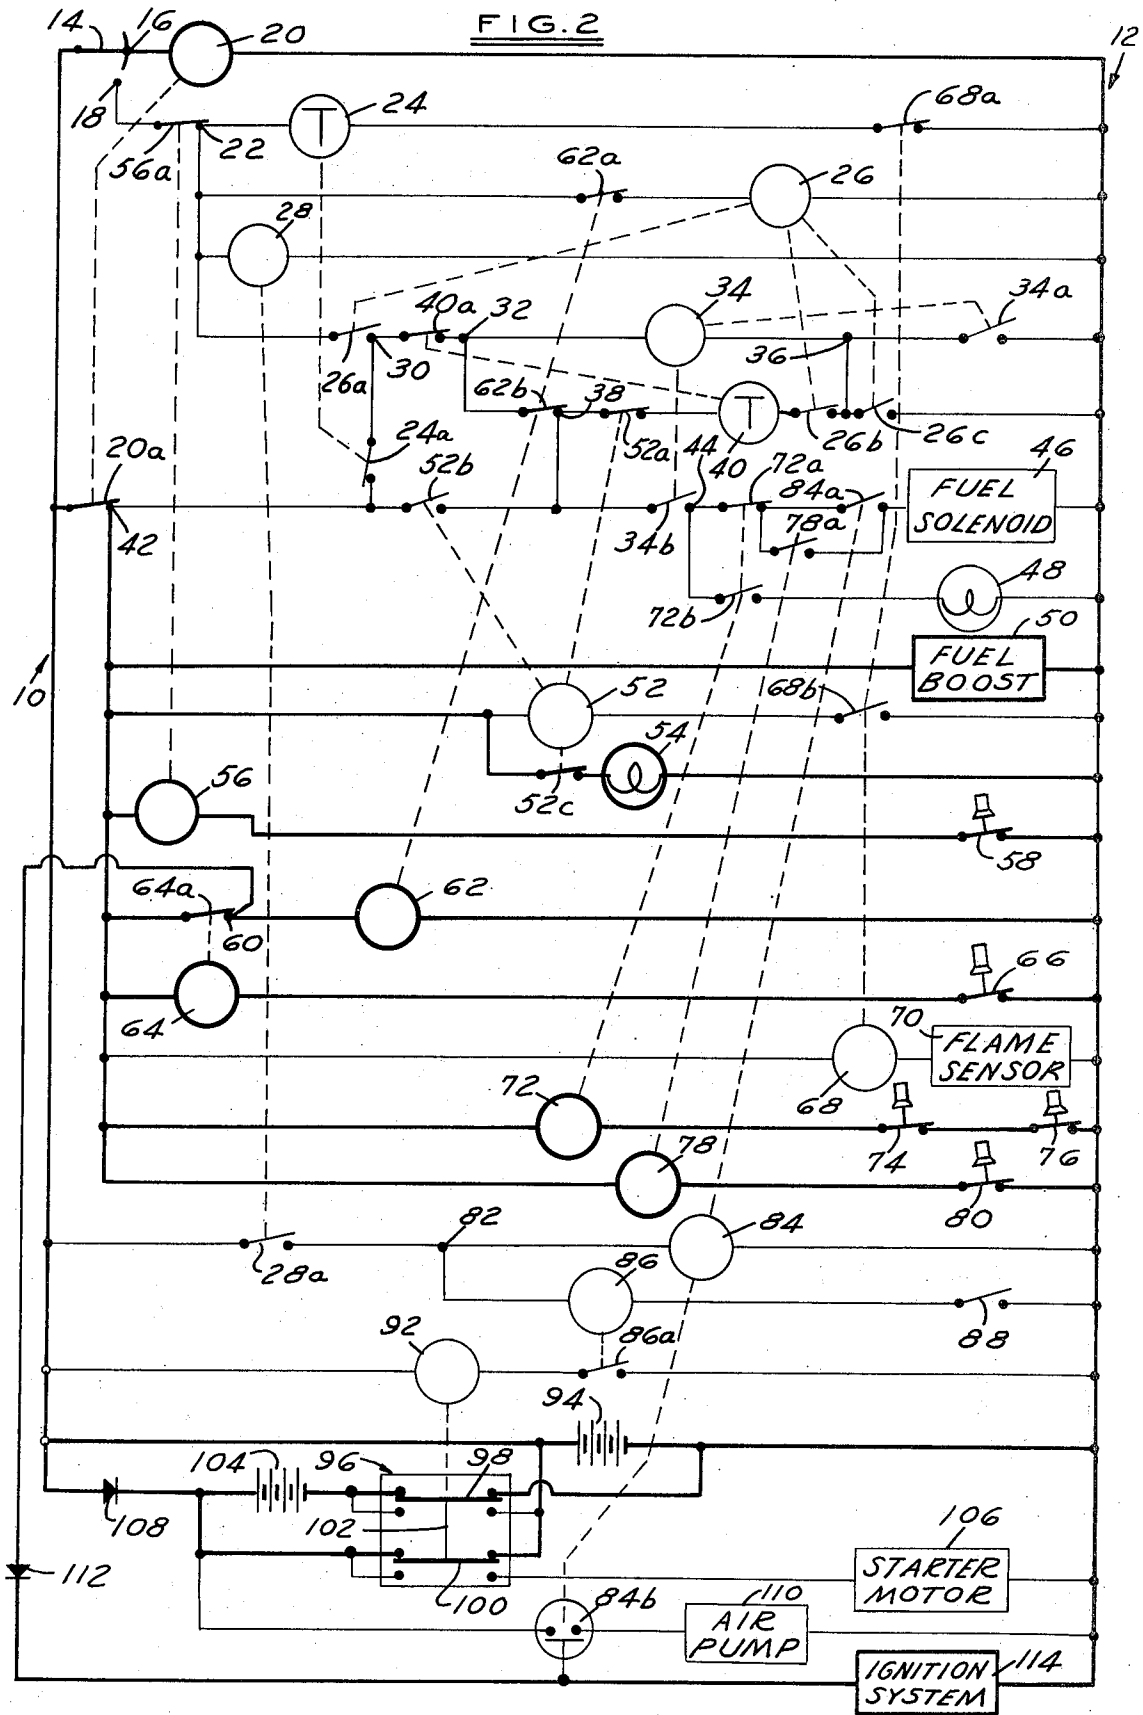 FIG.2
14
16
20
12
18
56a
22
T
24
68a
62a
26
28
40a
32
34
34a
26a
30
36
62b
38
52a
T
40
26b
26c
20a
24a
52b
44
72a
84a
46
FUEL
SOLENOID
42
34b
78a
48
72b
50
FUEL
BOOST
10
52
68b
54
56
52c
58
64a
62
60
66
64
70
FLAME
SENSOR
68
72
74
76
78
80
82
84
28a
86
88
92
86a
94
104
96
98
108
102
106
STARTER
MOTOR
112
100
84b
110
AIR
PUMP
IGNITION
SYSTEM
114